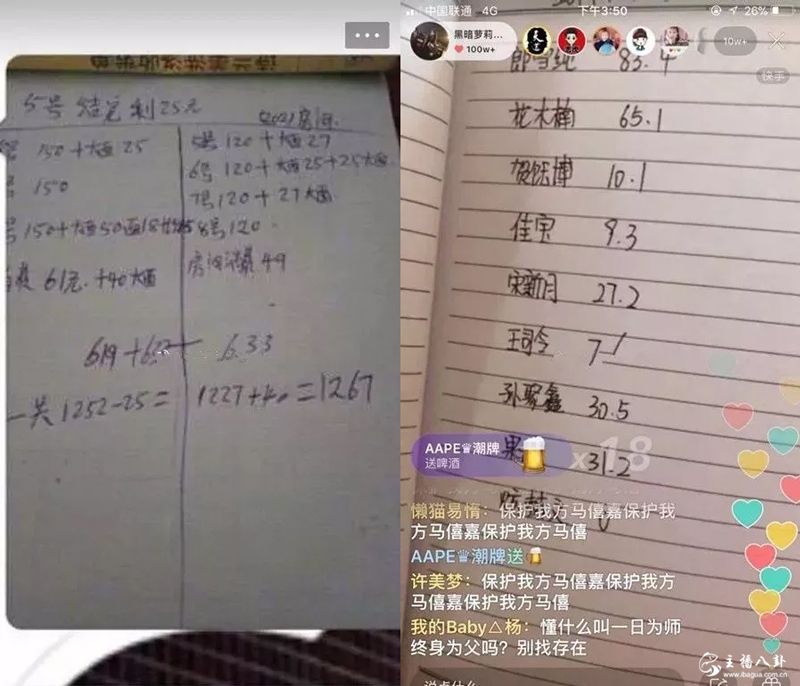 5号 结完利25元
2021房间
150+大西25
150
61元.+40大西
5号120+大西27
6号120+大西25+25大西
7号120+27大西
8号120
49
619+633
633
一共1252-25=1227+40=1267
中国联通 4G
下午3:50
26%
黑暗萝莉...
100w+
10w+
快手
83.4
花木楠 65.1
10.1
佳宝 9.3
宋新月 27.2
王司令 7.1
孙聚鑫 30.5
果 31.2
AAPE♛潮牌
送啤酒
x18
懒猫易惰:保护我方马僖嘉保护我
方马僖嘉保护我方马僖
AAPE♛潮牌送
许美梦:保护我方马僖嘉保护我方
马僖嘉保护我方马僖
我的Baby△杨:懂什么叫一日为师
终身为父吗?别找存在
说点什么...
主播八卦
www.ibagua.com.cn